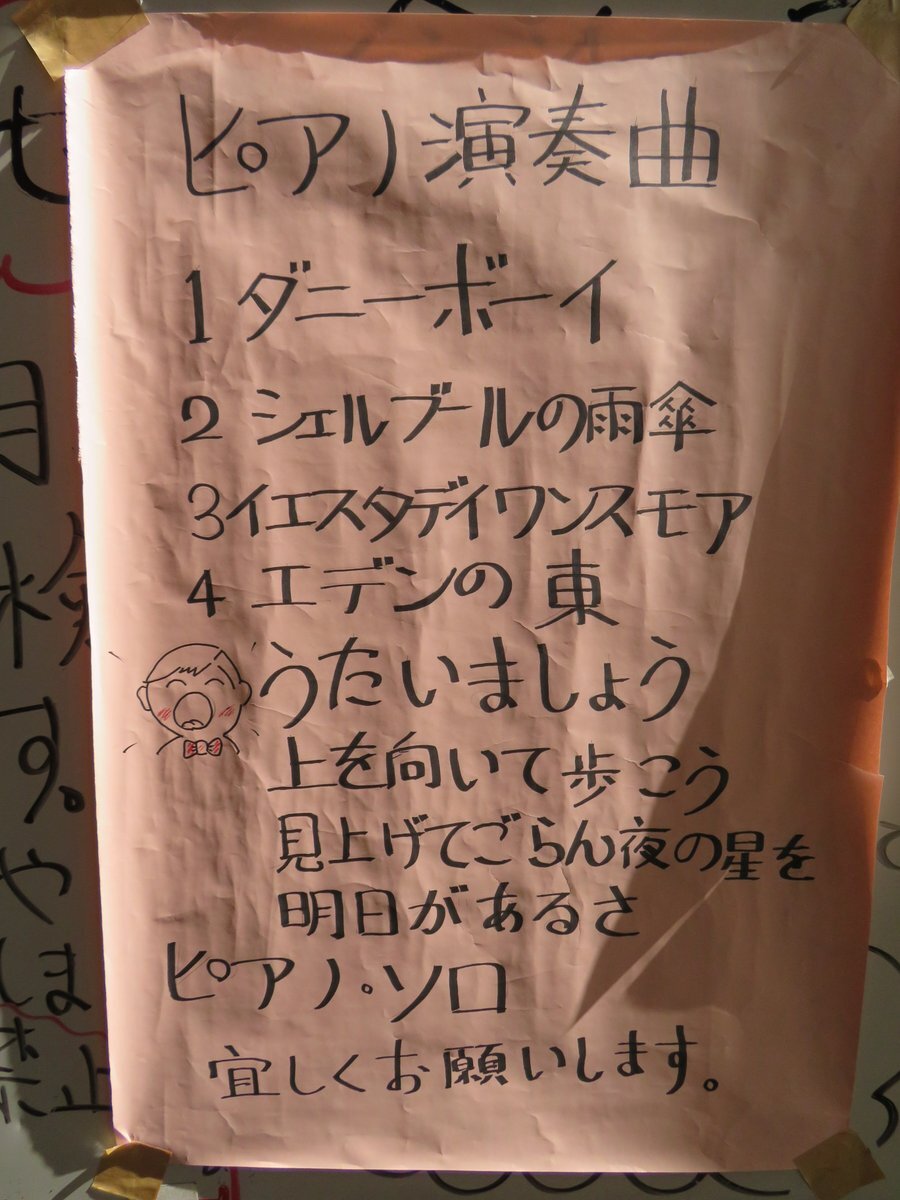 ピアノ演奏曲
1 ダニーボーイ
2 シェルブールの雨傘
3イエスタデイワンスモア
4 エデンの東
うたいましょう
上を向いて歩こう
見上げてごらん夜の星を
明日があるさ
ピアノ・ソロ
宜しくお願いします。